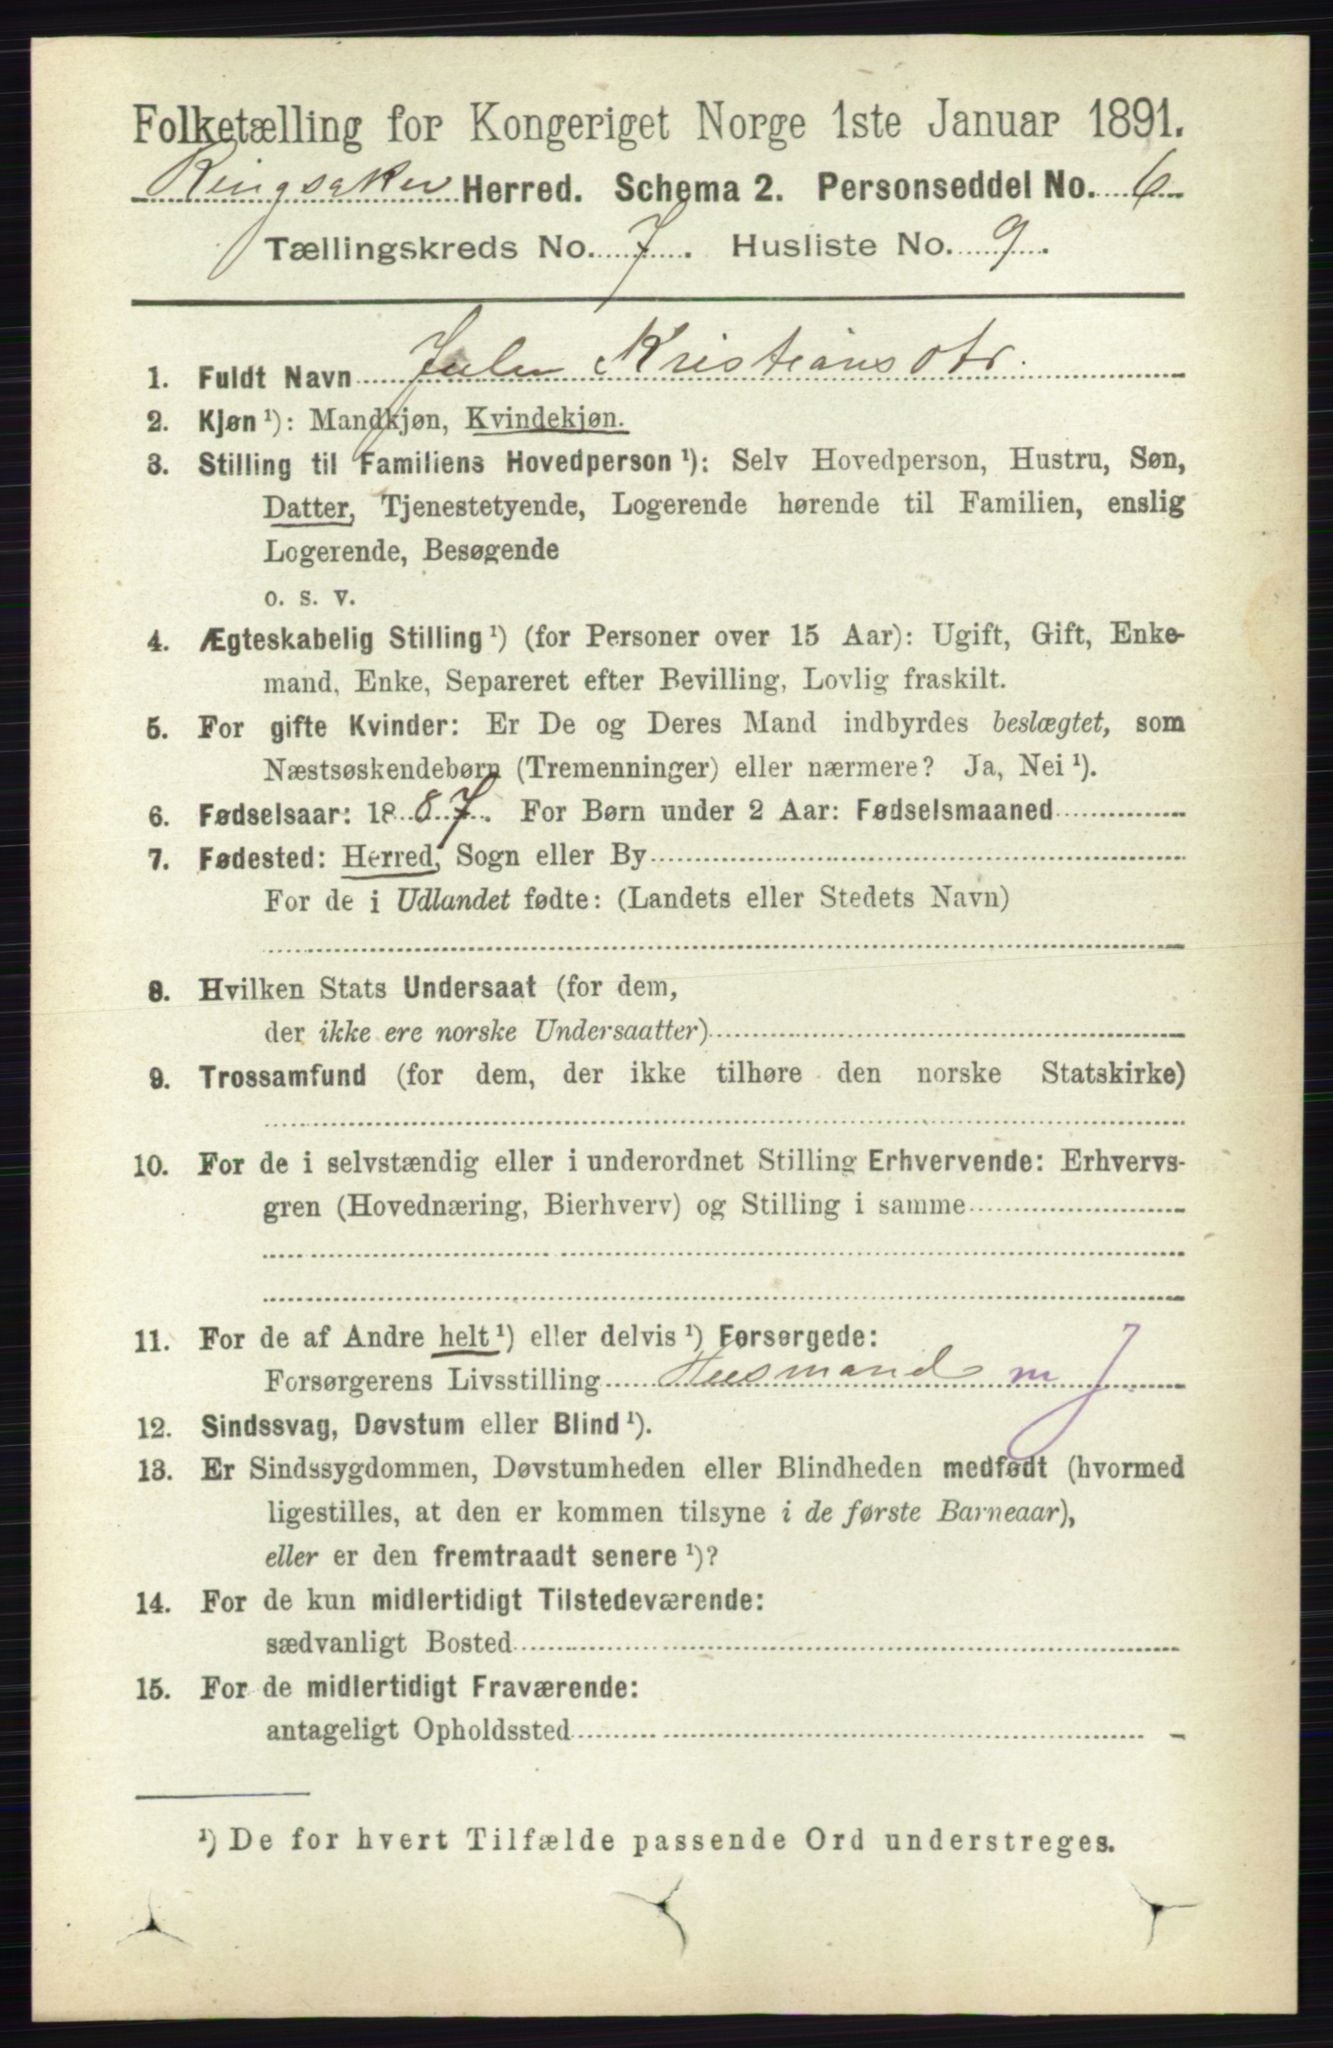 Folketælling for Kongeriget Norge 1ste Januar 1891.
Ringsaker Herred. Schema 2. Personseddel No. 6
Tællingskreds No. 7. Husliste No. 9.
1. Fuldt Navn Kristiansdtr.
2. Kjøn ¹): Mandkjøn, Kvindekjøn.
3. Stilling til Familiens Hovedperson ¹): Selv Hovedperson, Hustru, Søn,
Datter, Tjenestetyende, Logerende hørende til Familien, enslig
Logerende, Besøgende
o. s. v.
4. Ægteskabelig Stilling ¹) (for Personer over 15 Aar): Ugift, Gift, Enke-
mand, Enke, Separeret efter Bevilling, Lovlig fraskilt.
5. For gifte Kvinder: Er De og Deres Mand indbyrdes beslægtet, som
Næstsøskendebørn (Tremenninger) eller nærmere? Ja, Nei ¹).
6. Fødselsaar: 1887. For Børn under 2 Aar: Fødselsmaaned
7. Fødested: Herred, Sogn eller By
For de i Udlandet fødte: (Landets eller Stedets Navn)
8. Hvilken Stats Undersaat (for dem,
der ikke ere norske Undersaatter)
9. Trossamfund (for dem, der ikke tilhøre den norske Statskirke)
10. For de i selvstændig eller i underordnet Stilling Erhvervende: Erhvervs-
gren (Hovednæring, Bierhverv) og Stilling i samme
11. For de af Andre helt ¹) eller delvis ¹) Forsørgede:
Forsørgerens Livsstilling Husmand m J
12. Sindssvag, Døvstum eller Blind ¹).
13. Er Sindssygdommen, Døvstumheden eller Blindheden medfødt (hvormed
ligestilles, at den er kommen tilsyne i de første Barneaar),
eller er den fremtraadt senere ¹)?
14. For de kun midlertidigt Tilstedeværende:
sædvanligt Bosted
15. For de midlertidigt Fraværende:
antageligt Opholdssted
¹) De for hvert Tilfælde passende Ord understreges.